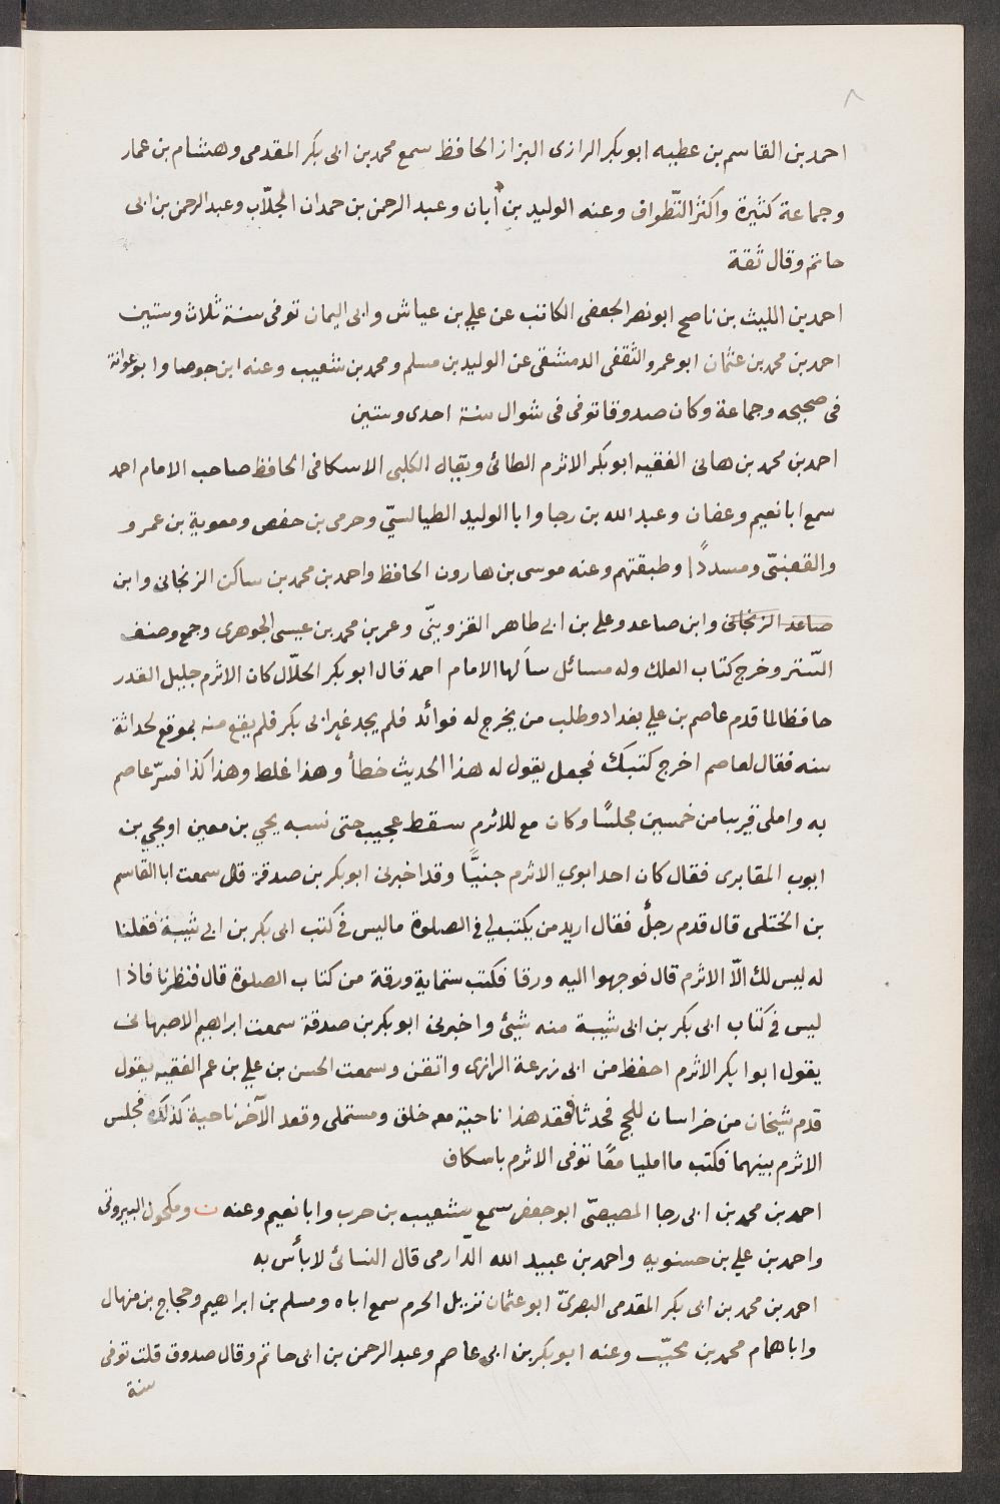 ٨
احمد بن القاسم بن عطيه ابو بكر الرازى البزاز الحافظ سمع محمد بن ابى بكر المقدمى وهشام بن عمار
وجماعة كثيرة واكثر التّطواف وعنه الوليد بن أبان وعبد الرحمن بن حمدان الجلّاب وعبد الرحمن بن ابى
حاتم وقال ثقة
احمد بن الليث بن ناصح ابو نصر الجعفى الكاتب عن علي بن عياش وابى اليمان توفى سنة ثلاث وستين
احمد بن محمد بن عثمان ابو عمرو الثقفى الدمشقى عن الوليد بن مسلم ومحمد بن شعيب وعنه ابن جوصا وابو عوانة
فى صحيحه وجماعة وكان صدوقا توفى فى شوال سنة احدى وستين
احمد بن محمد بن هانى الفقيه ابو بكر الاثرم الطائى ويقال الكلبى الاسكافى الحافظ صاحب الامام احمد
سمع ابا نعيم وعفان وعبد الله بن رجا وابا الوليد الطيالسيّ وحرمى بن حفص ومعوية بن عمرو
والقعنبّى ومسددًا وطبقتهم وعنه موسى بن هارون الحافظ واحمد بن محمد بن ساكن الزنجانى وابن
صاعد الزنجانى وابن صاعد وعلى بن ابي طاهر القزوينّى وعمر بن محمد بن عيسى الجوهرى وجمع وصنف
السّنن وخرج كتاب العلل وله مسائل سألها الامام احمد قال ابو بكر الخلّال كان الاثرم جليل القدر
حافظا لما قدم عاصم بن علي بغداد وطلب من يخرج له فوائد فلم يجد غير ابى بكر فلم يقع منه بموقع لحداثة
سنه فقال لعاصم اخرج كتبك فجعل يقول له هذا الحديث خطأ وهذا غلط وهذا كذا فسرّ عاصم
به واملى قريبا من خمسين مجلسًا وكان مع للاثرم سقط عجيب حتى نسبه يحي بن معين او يحي بن
ايوب المقابرى فقال كان احد ابوي الاثرم جنيًّا وقد اخبرنى ابو بكر بن صدقة قال سمعت ابا القاسم
بن الختلى قال قدم رجلٌ فقال اريد من يكتب لي في الصلوة ما ليس في كتب ابى بكر بن ابي شيبة فقلنا
له ليس لك الّا الاثرم قال فوجهوا اليه ورقا فكتب ستماية ورقة من كتاب الصلوة قال فنظرنا فاذا
ليس في كتاب ابى بكر بن ابى شيبة منه شيئ واخبرنى ابو بكر بن صدقة سمعت ابراهيم الاصبهانى
يقول ابوا بكر الاثرم احفظ من ابى زرعة الرازى واتقن وسمعت الحسن بن علي بن عم الفقيه يقول
قدم شيخان من خراسان للحج فحدثا فقعد هذا ناحية معه خلق ومستملى وقعد الآخر ناحية كذلك فجلس
الاثرم بينهما فكتب ما امليا معًا توفى الاثرم باسكاف
احمد بن محمد بن ابى رجا المصيصّى ابو جعفر سمع شعيب بن حرب وابا نعيم وعنه ن ومكحول البيروتى
واحمد بن علي بن حسنويه واحمد بن عبيد الله الدّارمى قال النسائى لا بأس به
احمد بن محمد بن ابى بكر المقدمى البصرىّ ابو عثمان نزيل الحرم سمع اباه ومسلم بن ابراهيم وحجاج بن منهال
وابا همام محمد بن محبّب وعنه ابو بكر بن ابى عاصم وعبد الرحمن بن ابى حاتم وقال صدوق قلت توفى
سنة